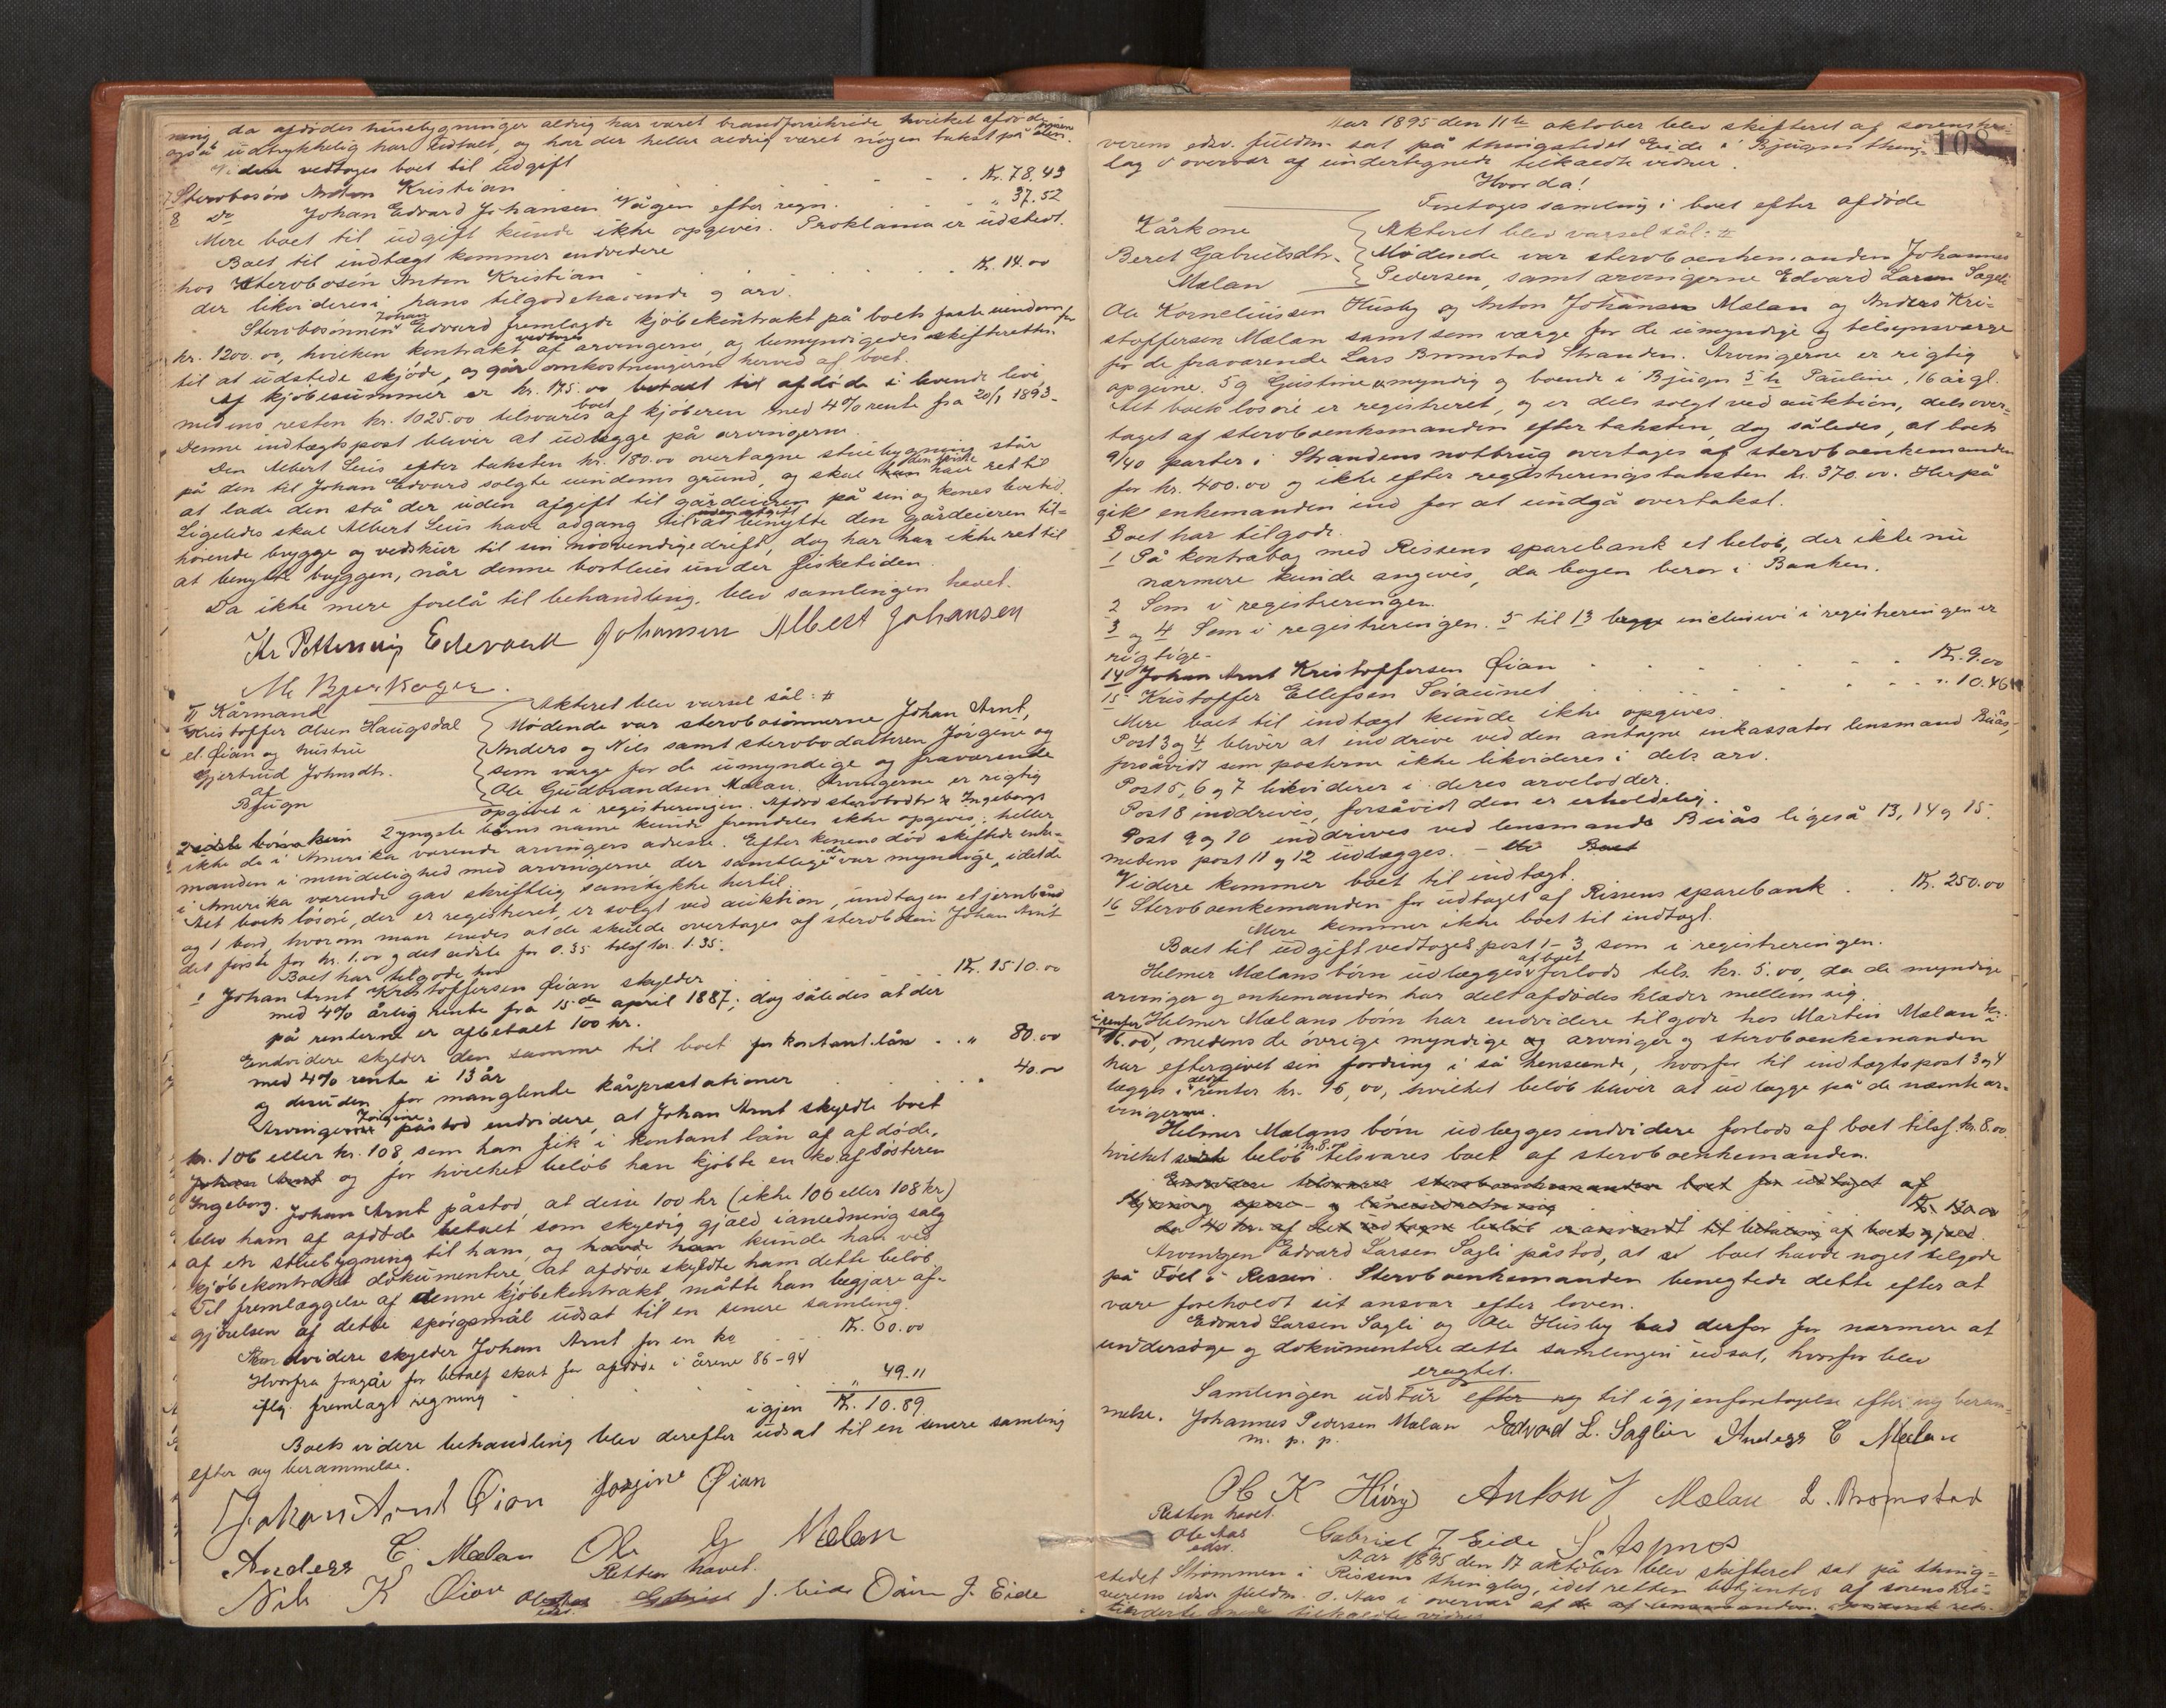 da afdødes husebygninger aldrig har været brandforsikrede hvilket afdøde
også udtrykkelig har udtalt, og har der heller aldrig været nogen takst på
Videre vedtages boet til udgift
7 Sterbosøn Anton Kristian Kr. 78.43
8 Do Johan Edvard Johansen Vågen efter regn. " 37.52
Mere boet til udgift kunde ikke opgives. Proklama er udstedt.
Boet til indtægt kommer endvidere
hos Sterbosøn Anton Kristian Kr. 14.00
der likvideres i hans tilgodehavende og arv.
Sterbosønnen Johan Edvard fremlagde kjøbekontrakt på boets faste eiendom for
kr. 1200.00, hvilken kontrakt vedtoges af arvingerne, og bemyndigedes skifteretten
til at udstede skjøde, og går omkostningerne herved af boet.
Af kjøbesummen er kr. 175.00 betalt til afdøde i levende live
medens resten kr. 1025.00 tilsvares boet af kjøberen med 4% rente fra 20/1 1893.
Denne indtægtspost bliver at udlægge på arvingerne.
Den Albert Leis efter taksten kr. 180.00 overtagne stuebygning står
på den til Johan Edvard solgte eiendoms grund, og skal have ret til
at lade den stå der uden afgift til gårdeieren på sin og kones levetid.
Ligeledes skal Albert Leis have adgang til uden afgift at benytte den gårdeieren til-
hørende brygge og vedskur til sin nødvendige drift, dog har han ikke ret til
at benytte bryggen, når denne bortleies under fisketiden.
Da ikke mere forelå til behandling, blev samlingen hævet.
Edevard Johansen Albert Johansen
II Kårmand
Kristoffer Olsen Haugsdal
el. Øian og hustru
Gjertrud Johnsdtr.
af
Bjugn
Akteret blev varsel sål: #
Mødende var sterbosønnerne Johan Arnt,
Anders og Nils samt sterbodatteren Jørgine og
som værge for de umyndige og fraværende
Ole Gudbrandsen Mælan. Arvingerne er rigtig
opgivet i registreringen. Afdød sterbodtr Ingeborgs
2 yngste børns navne kunde fremdeles ikke opgives; heller
ikke de i Amerika værende arvingers adresse. Efter konens død skiftede enke-
manden i mindelighed med arvingerne der samtlige da var myndige, idet de
i Amerika værende gav skriftlig samtykke hertil.
Alt boets løsøre, der er registreret, er solgt ved auktion, undtagen et jernbånd
og 1 bord, hvorom man enedes at de skulde overtages af sterbosøn Johan Arnt
det første for kr. 1.00 og det sidste for 0.35 tilsf kr. 1.35.
Boet har tilgode hos
1 Johan Arnt Kristoffersen Øian skylder Kr. 1510.00
med 4% årlig rente fra 15de april 1887; dog således at der
på renterne er afbetalt 100 kr.
Endvidere skylder den samme til boet for kontant lån " 80.00
med 4% rente i 13 år
og desuden for manglende kårpræstationer " 40.00
Arvingen Jørgine påstod endvidere, at Johan Arnt skyldte boet
kr. 106 eller kr. 108 som han fik i kontant lån af afdøde,
Johan Arnt og for hvilket beløb han kjøbte en ko af søsteren
Ingeborg. Johan Arnt påstod, at disse 100 kr (ikke 106 eller 108 kr)
blev ham af afdøde betalt som skyldig gjæld i anledning salg
af en stuebygning til ham, og kunde han ved
kjøbekontrakt dokumentere, at afdøde skyldte ham dette beløb.
Til fremlæggelse af denne kjøbekontrakt måtte han begjære af-
gjørelsen af dette spørgsmål udsat til en senere samling.
Endvidere skylder Johan Arnt for en ko Kr. 60.00
Hvorfra fragår for betalt skat for afdøde i årene 86-94
iflg. fremlagt regning " 49.11
igjen Kr. 10.89
Boets videre behandling blev derefter udsat til en senere samling
efter ny berammelse.
Johan Arnt Øian Jørgine Øian
Anders C. Mælan Ole G Mælan
Retten hævet.
Nils K Øian J. Eide J. Eide
108
Aar 1895 den 11te oktober blev skifteret af sorenskri-
verens edsv. fuldm. sat på thingstedet Eide i Bjugns thing-
lag i overvær af undertegnede tilkaldte vidner.
Hvorda!
Foretages samling i boet efter afdøde
Kårkone
Beret Gabrielsdtr.
Mælan
Akteret blev varsel sål: #
Mødende var sterboenkemanden Johannes
Pedersen, samt arvingerne Edvard Larsen Sagli
Ole Korneliussen Husby og Anton Johansen Mælan og Anders Kri-
stoffersen Mælan samt som værge for de umyndige og tilsynsværge
for de fraværende Lars Bromstad Stranden. Arvingerne er rigtig
opgivne. 5 g Gustine umyndig og boende i Bjugn 5 h Pauline, 16 år gl.
Alt boets løsøre er registreret, og er dels solgt ved auktion, dels over-
taget af sterboenkemanden efter taksten, dog således, at boets
9/40 parter i Strandens notbrug overtages af sterboenkemanden
for kr. 400.00 og ikke efter registreringstaksten kr. 370.00. Herpå
gik enkemanden ind for at undgå overtakst.
Boet har tilgode.
1 På kontrabog med Rissens sparebank et beløb, der ikke nu
nærmere kunde angives, da bogen beror i Banken.
2 Som i registreringen.
3 og 4 Som i registreringen. 5 til 13 begge inclusive i registreringen er
rigtige.
14 Johan Arnt Kristoffersen Øian Kr. 9.00
15 Kristoffer Ellefsen Seraunet " 10.46
Mere boet til indtægt kunde ikke opgives.
Post 3 og 4 bliver at inddrive ved den antagne inkassator lensmand Buås,
forsåvidt som posterne ikke likvideres i dels arv.
Post 5, 6 og 7 likviderer i deres arvelodder.
Post 8 inddrives, forsåvidt den er erholdelig.
Post 9 og 10 inddrives ved lensmand Buås ligeså 13, 14 og 15.
medens post 11 og 12 udlægges.
Videre kommer boet til indtægt.
16 Sterboenkemanden for udtaget af Rissens sparebank Kr. 250.00
Mere kommer ikke boet til indtægt.
Boet til udgift vedtages post 1-3, som i registreringen.
Helmer Mælans børn udlægges af boet forlods tils. kr. 5.00, da de myndige
arvinger og enkemanden har delt afdødes klæder mellem sig.
Helmer Mælans børn har endvidere tilgode hos Martin Mælan kr.
i renter 16.00, medens de øvrige myndige arvinger og sterboenkemanden
har eftergivet sin fordring i så henseende, hvorfor til indtægtspost 3 og 4
lægges i renter kr. 16,00, hvilket beløb bliver at udlægge på de nævnte ar-
vingerne.
Helmer Mælans børn udlægges endvidere forlods af boet tilsf. kr. 8.00
hvilket beløb kr. 8.00 tilsvares boet af sterboenkemanden.
Endvidere tilsvarer sterboenkemanden boet for udtaget af
Kr. 130.00
da 40 kr. af det udtagne beløb er anvendt til betaling af boets gjæld.
Arvingen Edvard Larsen Sagli påstod, at boet havde noget tilgode
på Føel i Rissen. Sterboenkemanden benegtede dette efter at
være foreholdt sit ansvar efter loven.
Edvard Larsen Sagli og Ole Husby bad derfor for nærmere at
undersøge og dokumentere dette samlingen udsat, hvorfor blev
eragtet.
Samlingen udstår til igjenforetagelse efter ny beram-
melse. Johannes Pedersen Mælan Edvard L. Saglier Anders C Mælan
m. p. p.
Ole K Husby Anton J Mælan L. Bromstad
Retten hævet.
Ole Aas
edsv.
Gabriel J Eide S Aspnes
Aar 1895 den 17 oktober blev skifteret sat på thing-
stedet Strømmen i Rissens thinglag, idet retten betjentes af sorenskri-
verens edsv fuldm. O. Aas i overvær af